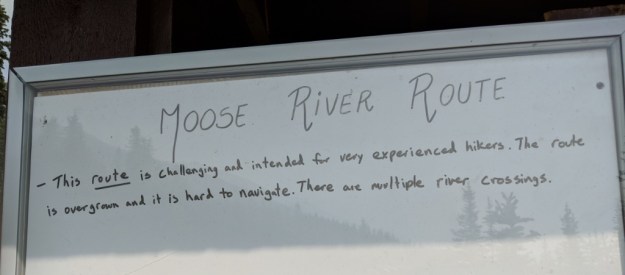 MOOSE RIVER ROUTE
- This route is challenging and intended for very experienced hikers. The route
is overgrown and it is hard to navigate. There are multiple river crossings.